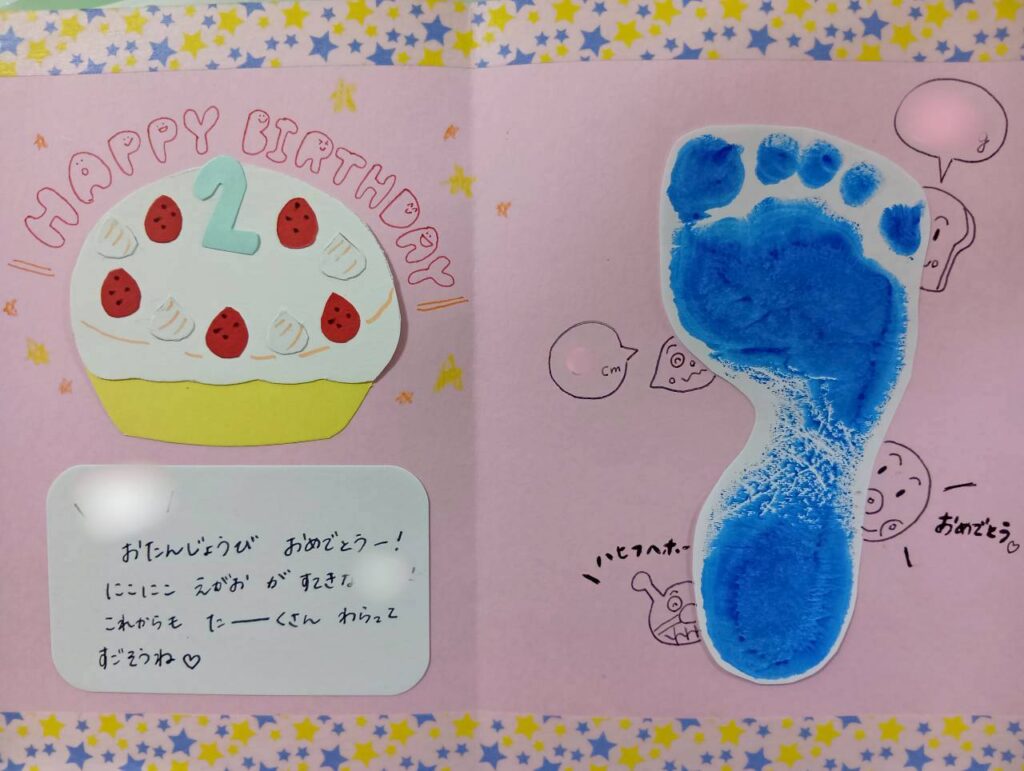 HAPPY BIRTHDAY
2
おたんじょうび おめでとうー!
にこにこ えがお が すてきな !
これからも た──くさん わらって
すごそうね♡
g
cm
おめでとう♡
ハヒフヘホー